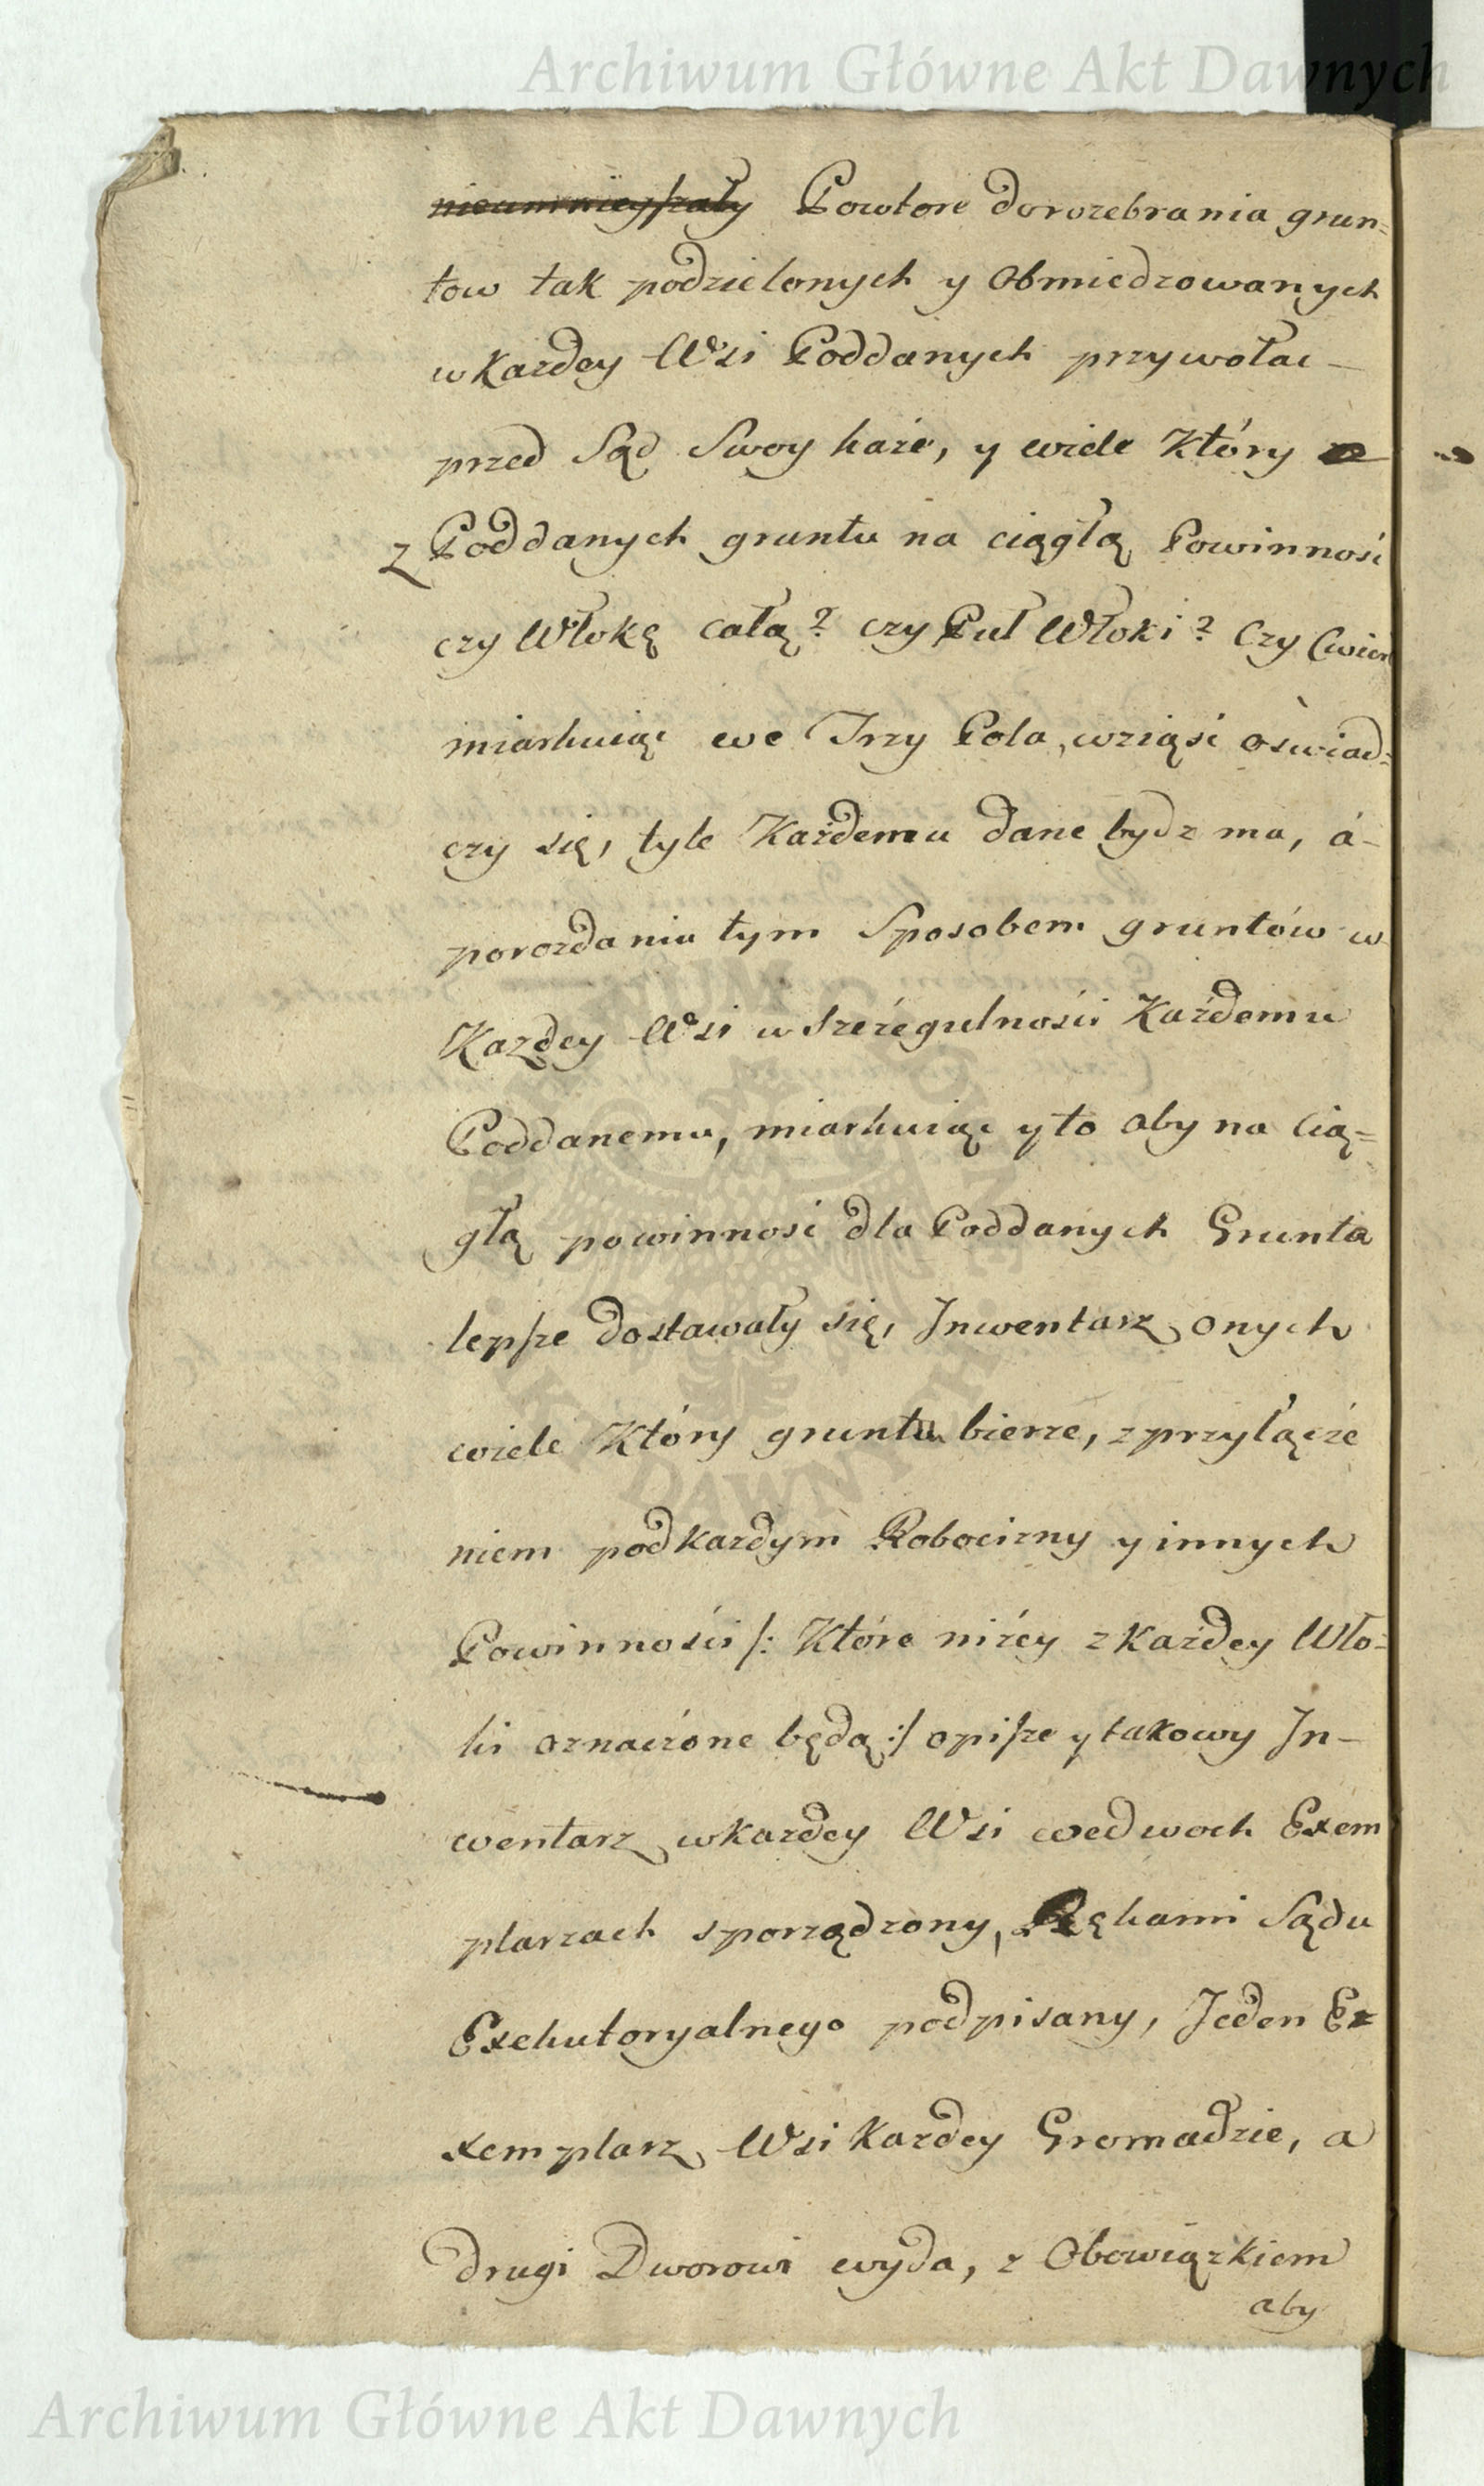 Archiwum Główne Akt Dawnych
nieumnieyszały Powtore dorozebrania grun=
tow tak podzielonych y Obmiedzowanych
wkazdey Wsi Poddanych przywołac –
przed Sąd Swoy każe, y wiele Który
z Poddanych gruntu na ciągłą Powinność
czy Włokę całą? czy Puł Włoki? Czy Cwierć
miarkuiąc we Trzy Pola, wziąsć oświad=
czy się, tyle Każdemu dane bydz ma, á –
porozdaniu tym Sposobem gruntów w
Kazdey Wsi w szczegulności Każdemu
Poddanemu, miarkuiąc y to aby na Cią=
głą powinnosc dla Poddanych Grunta
lepsze dostawały się, Jnwentarz onych
wiele Który gruntu bierze, z przyłącze
niem pod kazdym Robocizny y innych
Powinności /: Które niżey z Każdey Wło=
ki oznaczone będą :/ opisze y takowy Jn –
wentarz w Kazdey Wsi wedwoch Exem
plarzach sporządzony, Rękami Sądu
Exekutoryalnego podpisany, Jeden Ex
xemplarz Wsi Kazdey Gromadzie, a
drugi Dworowi wyda, z Obowiązkiem
aby
Archiwum Główne Akt Dawnych